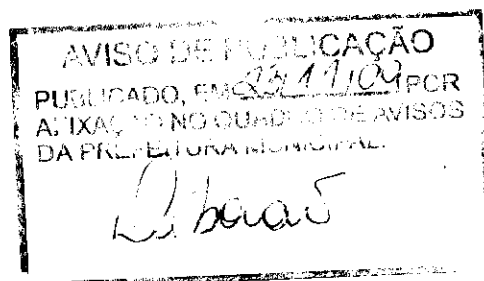 AVISO DE PUBLICAÇÃO
PUBLICADO, EM 23/11/09 POR
AFIXAÇÃO NO QUADRO DE AVISOS
DA PREFEITURA MUNICIPAL.